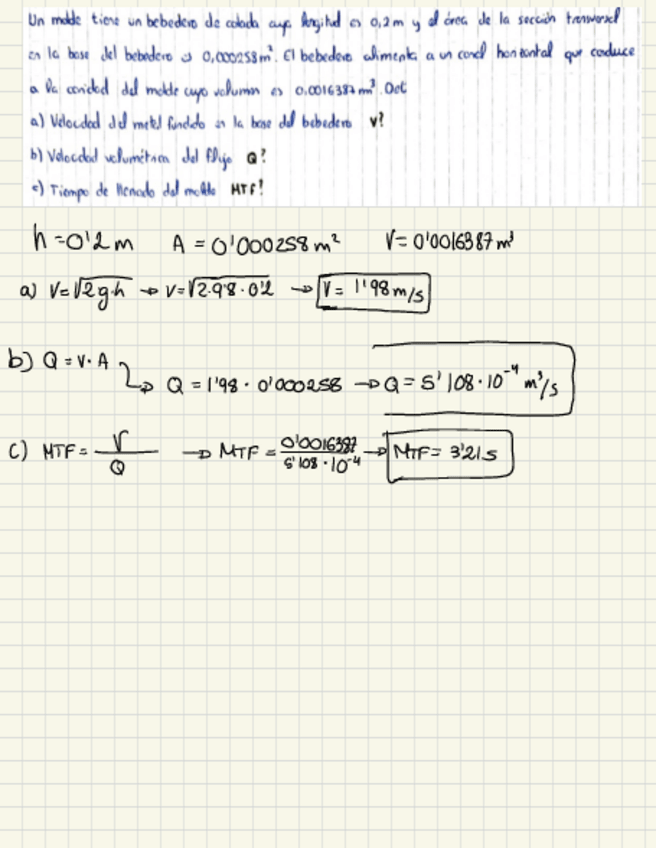 Un molde tiene un bebedero de colada cuya longitud es 0,2 m y el área de la sección transversal
en la base del bebedero es 0,000258 m². El bebedero alimenta a un canal horizontal que conduce
a la cavidad del molde cuyo volumen es 0.0016387 m³. Det
a) Velocidad del metal fundido en la base del bebedero v?
b) Velocidad volumétrica del flujo Q?
c) Tiempo de llenado del molde MTF?
h = 0'2 m A = 0'000258 m² V = 0'0016387 m³
a) V = √2·g·h → V = √2·9'8·0'2 → V = 1'98 m/s
b) Q = v · A → Q = 1'98 · 0'000258 → Q = 5'108·10⁻⁴ m³/s
c) MTF = V/Q → MTF = 0'0016387/5'108·10⁻⁴ → MTF = 3'21 s